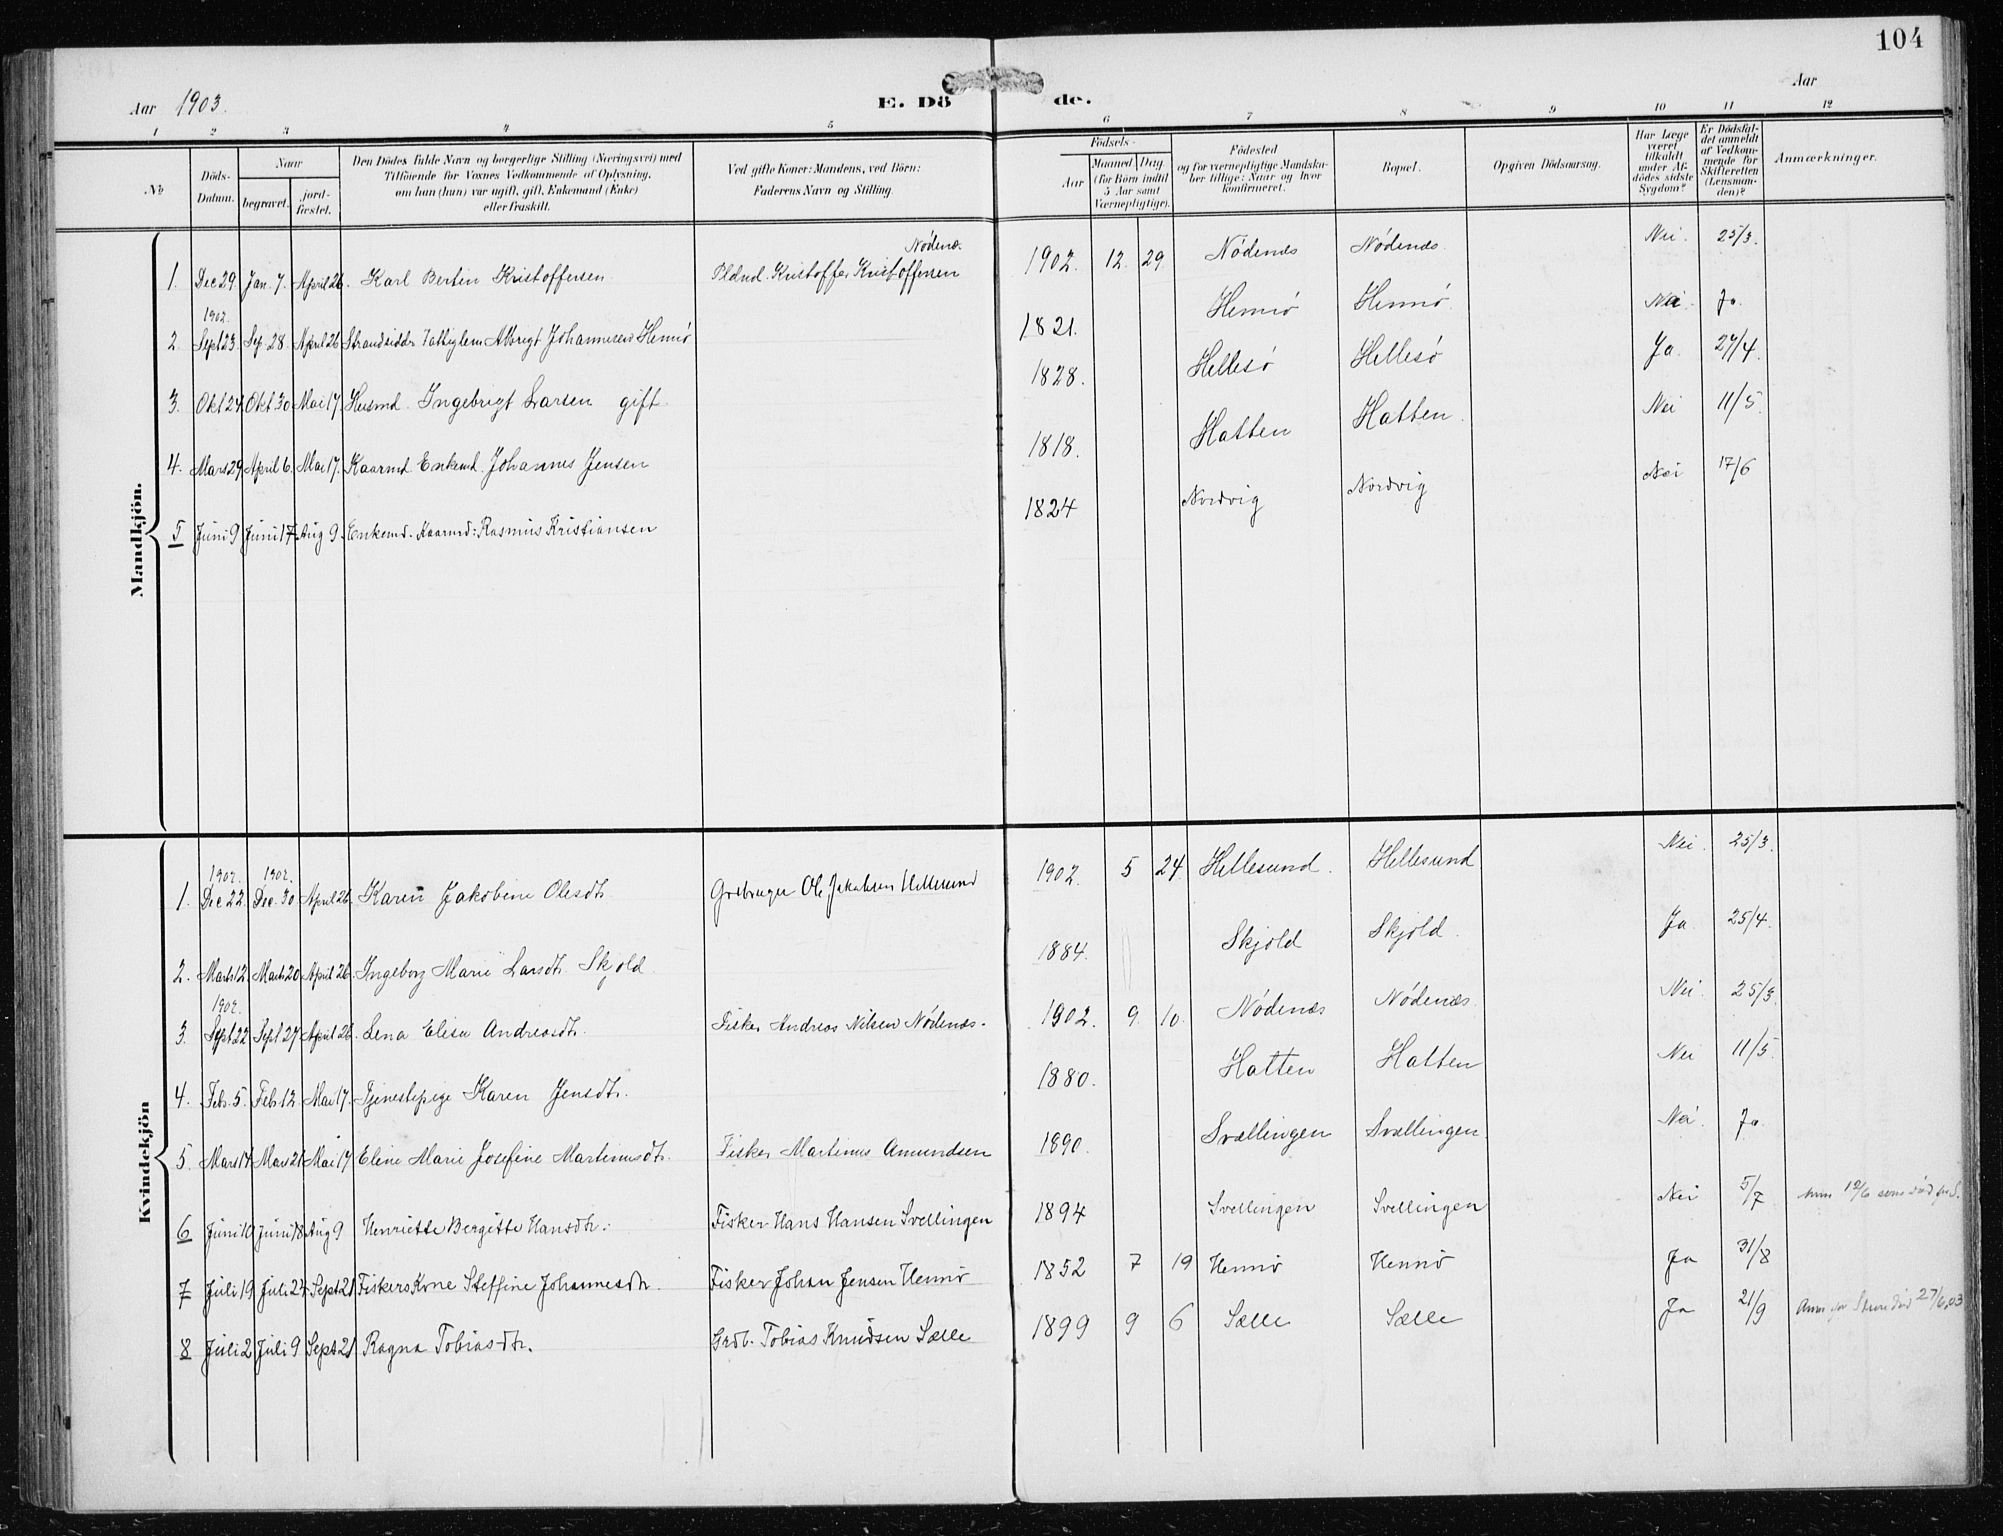 104
Aar 1903.
E. Döde.
Aar
1 2 3 4 5 6 7 8 9 10 11 12
No
Döds-Datum.
Naar
begravet.
jord-fæstet.
Den Dödes fulde Navn og borgerlige Stilling (Næringsvei) med
Tilföiende för Voxnes Vedkommende af Oplysning,
om han (hun) var ugift, gift, Enkemand (Enke)
eller fraskilt.
Ved gifte Koner: Mandens, ved Börn:
Faderens Navn og Stilling.
Födsels-
Aar
Maaned Dag
(for Börn indtil
5 Aar samt
Værnepligtige).
Födested
og for værnepligtige Mandska-
ber tillige: Naar og hvor
konfirmeret.
Bopæl.
Opgiven Dödsaarsag.
Har Læge
været
tilkaldt
under Af-
dödes sidste
Sygdom?
Er Dödsfal-
det anmeldt
af Vedkom-
mende for
Skifteretten
(Lensman-
den)?
Anmærkninger.
Mandkjön.
1. Dec 29. Jan. 7. April 26. Karl Bertin Kristoffersen Kristoffer Kristoffersen Nødenæs. 1902. 12. 29. Nødenæs Nødenæs. Nei. 25/3.
1902.
2. Sept 23. Sep. 28. April 26 Albrigt Johannesen Hemnø 1821. Hemnø Hemnø. Nei. Ja.
3. Okt 24. Okt. 30 Mai 17. Husmd. Ingebrigt Larsen gift. 1828. Hellesø Hellesø Ja. 27/4.
4. Mars 29. April 6. Mai 17. Kaarmd. Enkemd. Johannes Jensen 1818. Hatten Hatten. Nei 11/5.
5 Juni 9 Juni 17 Aug 9. Enkemd. Kaarmd: Rasmus Kristiansen 1824 Nordvig Nordvig Nei 17/6
Kvindekjön
1902. 1902.
1. Dec 22. Dec. 30 April 26. Karen Jakobine Olesdtr. Grdbruger Ole Jakobsen Hellesund 1902. 5 24. Hellesund. Hellesund Nei. 25/3.
2. Marts 12. Marts 20 April 26. Ingeborg Marie Larsdtr. Skjold. 1884. Skjold Skjold. Ja. 25/4.
1902.
3. Sept 22 Sept 27 April 26. Lena Elisa Andreasdtr. Fisker Andreas Nilsen Nødenæs. 1902. 9. 10. Nødenæs Nødenæs. Nei. 25/3.
4. Feb. 5. Feb. 12. Mai 17. Tjenestepige Karen Jensdtr. 1880. Hatten Hatten Nei 11/5.
5. Mars 14. Mars 21 Mai 17 Eline Marie Josefine Martinusdtr. Fisker Martinus Amundsen 1890. Svællingen Svællingen. Nei. Ja.
6 Juni 10 Juni 18 Aug 9 Henriette Bergitte Hansdtr. Fisker Hans Hansen Svellingen 1894 Svellingen Svellingen Nei 5/7
7 Juli 19 Juli 24 Sept 21 Fiskers Kone Steffine Johannesdtr. Fisker Johan Jensen Hemnø 1852 7 19 Hemnø Hemnø Ja 31/8
8 Juli 2 Juli 9 Sept 21 Ragna Tobiasdtr. Grdb. Tobias Knudsen Sælle 1899 9 6 Sælle Sælle Ja 21/9